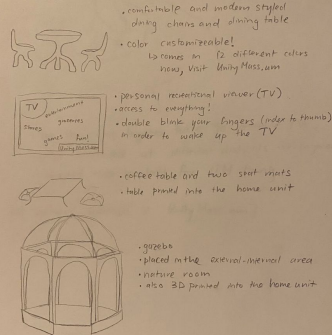 • comfortable and modern styled
dinky chairs and dining table
• color customizeable!
↳ comes in 12 different colors
now, Visit UnityMass.um
TV
entertainment
groceries
games
fun!
UnityMass.um
• personal recreational viewer (TV)
• access to everything!
• double blink your fingers (index to thumb)
in order to wake up the TV
• coffee table and two seat mats
• table printed into the home unit
• gazebo
• placed in the external-internal area
• nature room
• also 3D printed into the home unit